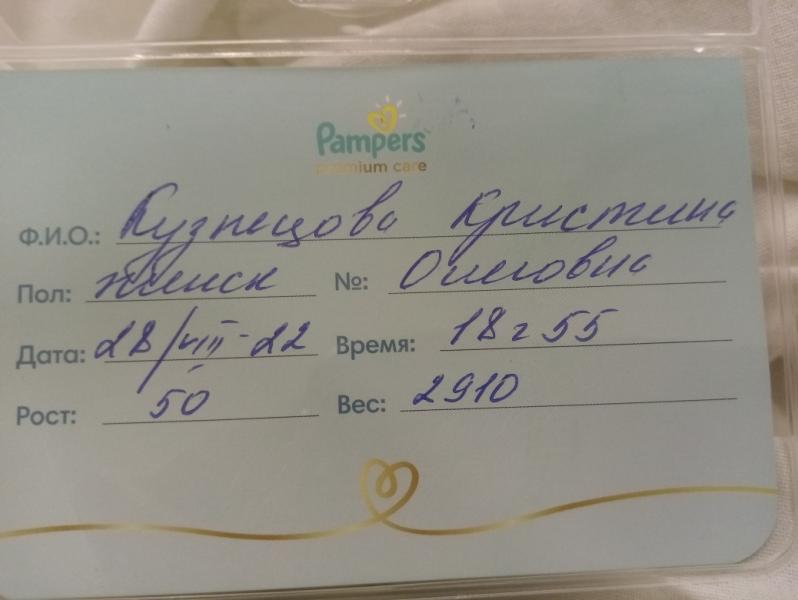 Pampers
premium care
Ф.И.О.: Кузнецова Кристина
Пол: женск №: Олеговна
Дата: 28/VIII-22 Время: 18 г 55
Рост: 50 Вес: 2910